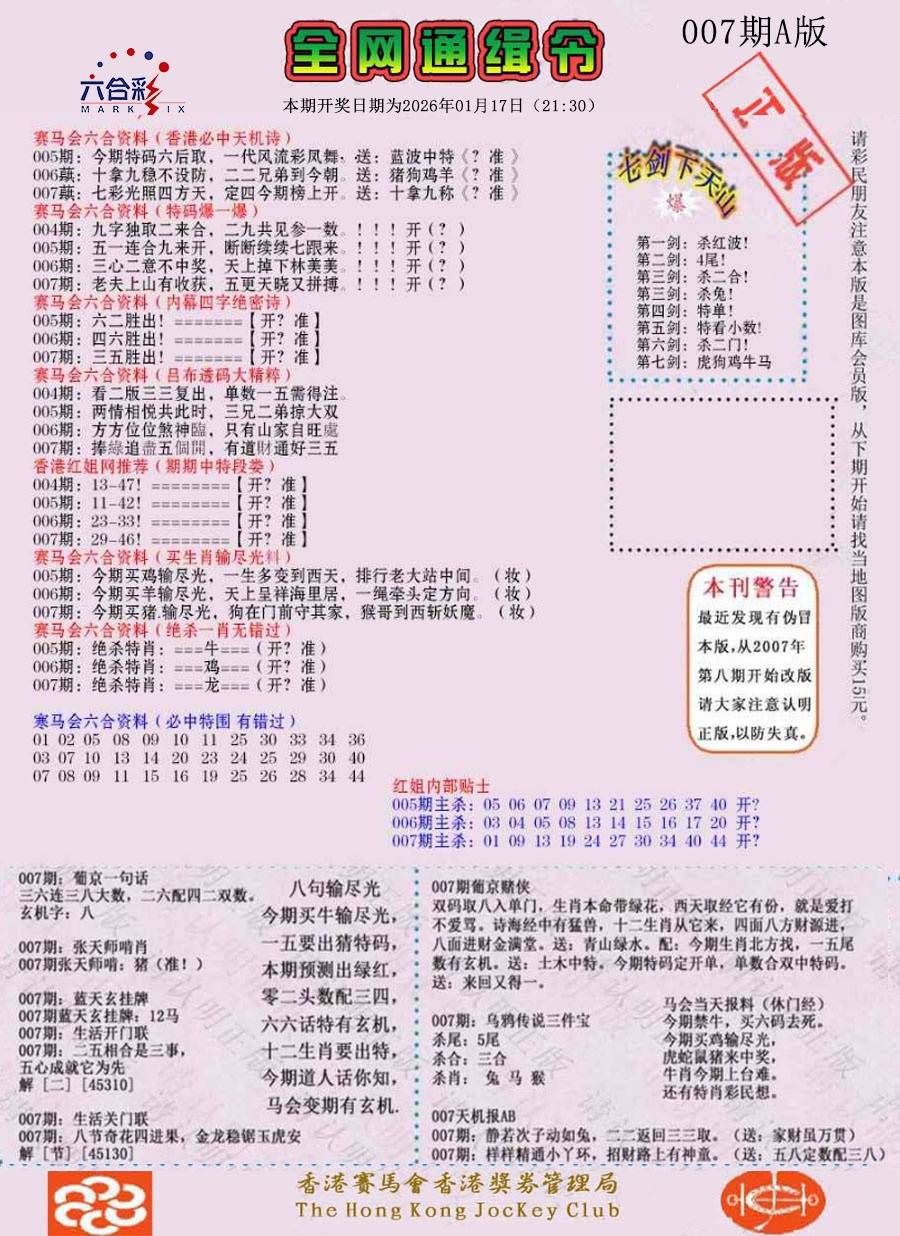 全网通缉令
007期A版
六合彩
MARK SIX
本期开奖日期为2026年01月17日（21:30）
正版
赛马会六合资料（香港必中天机诗）
005期：今期特码六后取，一代风流彩凤舞．送：蓝波中特《？准 》
006蘒：十拿九稳不设防，二二兄弟到今朝。送：猪狗鸡羊《？准 》
007蘒：七彩光照四方天，定四今期榜上开。送：十拿九称《？准 》
赛马会六合资料（特码爆一爆）
004期：九字独取二来合，二九共见参一数。！！！开（？ ）
005期：五一连合九来开，断断续续七跟来。！！！开（？ ）
006期：三心二意不中奖，天上掉下林美美。！！！开（？ ）
007期：老夫上山有收获，五更天晓又拼搏。！！！开（？ ）
赛马会六合资料（内幕四字绝密诗）
005期：六二胜出！=======【开？准】
006期：四六胜出！=======【开？准】
007期：三五胜出！=======【开？准】
赛马会六合资料（吕布透码大精粹）
004期：看二版三三复出，单数一五需得注。
005期：两情相悦共此时，三兄二弟掠大双
006期：方方位位煞神臨，只有山家自旺處
007期：捧綠追盡五個開，有道財通好三五
香港红姐网推荐（期期中特段娄）
004期：13-47！========【开？准】
005期：11-42！========【开？准】
006期：23-33！========【开？准】
007期：29-46！========【开？准】
赛马会六合资料（买生肖输尽光料）
005期：今期买鸡输尽光，一生多变到西天，排行老大站中间。（妆）
006期：今期买羊输尽光，天上呈祥海里居，一绳牵头定方向。（妆）
007期：今期买猪.输尽光，狗在门前守其家，猴哥到西斩妖魔。（妆）
赛马会六合资料（绝杀一肖无错过）
005期：绝杀特肖：===牛===（开？准）
006期：绝杀特肖：===鸡===（开？准）
007期：绝杀特肖：===龙===（开？准）
寒马会六合资料（必中特围 有错过）
01 02 05 08 09 10 11 25 30 33 34 36
03 07 10 13 14 20 23 24 25 29 30 40
07 08 09 11 15 16 19 25 26 28 34 44
七剑下天山
爆
第一剑：杀红波！
第二剑：4尾！
第三剑：杀二合！
第三剑：杀兔！
第四剑：特单！
第五剑：特看小数！
第六剑：杀二门！
第七剑：虎狗鸡牛马
请彩民朋友注意本版是图库会员版，从下期开始请找当地图版商购买15元。
本刊警告
最近发现有伪冒
本版,从2007年
第八期开始改版
请大家注意认明
正版,以防失真。
红姐内部贴士
005期主杀：05 06 07 09 13 21 25 26 37 40 开?
006期主杀：03 04 05 08 13 14 15 16 17 20 开?
007期主杀：01 09 13 19 24 27 30 34 40 44 开?
007期：葡京一句话
三六连三八大数，二六配四二双数。
玄机字：八
007期：张天师啃肖
007期张天师啃：猪（准！）
007期：蓝天玄挂牌
007期蓝天玄挂牌：12马
007期：生活开门联
007期：二五相合是三事，
五心成就它为先
解［二］[45310]
007期：生活关门联
007期：八节奇花四进果，金龙稳锯玉虎安
解［节］[45130]
八句输尽光
今期买牛输尽光，
一五要出猜特码，
本期预测出绿红，
零二头数配三四，
六六话特有玄机，
十二生肖要出特，
今期道人话你知，
马会变期有玄机.
007期葡京赌侠
双码取八入单门，生肖本命带绿花，西天取经它有份，就是爱打
不爱骂。诗海经中有猛兽，十二生肖从它来，四面八方财源进，
八面进财金满堂。送：青山绿水。配：今期生肖北方找，一五尾
数有玄机。送：土木中特。今期特码定开单，单数合双中特码。
送：来回又得一。
007期：乌鸦传说三件宝
杀尾：5尾
杀合：三合
杀肖： 兔 马 猴
马会当天报料（休门经）
今期禁牛，买六码去死。
今期买鸡输尽光，
虎蛇鼠猪来中奖，
牛肖今期上台难。
还有特肖彩民想。
007天机报AB
007期：静若次子动如兔，二二返回三三取。（送：家财虽万贯）
007期：样样精通小丫环，招财路上有神童。（送：五八定数配三八）
香港賽馬會香港獎券管理局
The Hong Kong JocKey Club